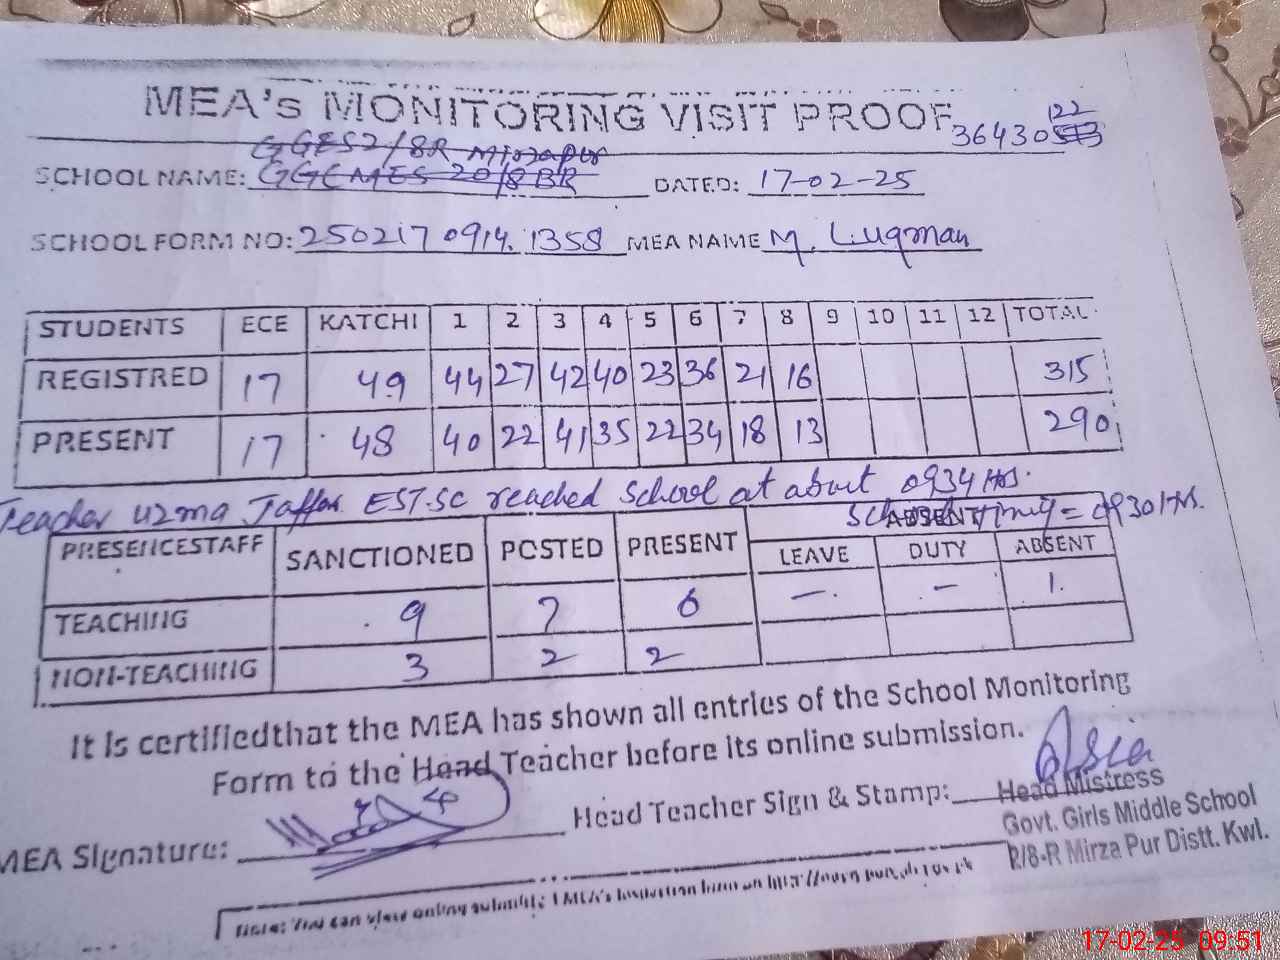 MEA's MONITORING VISIT PROOF
36430573 122
GGES 2/8R Mirzapur
SCHOOL NAME: GGCMES 20/8BR DATED: 17-02-25
SCHOOL FORM NO: 2502170914.1358 MEA NAME M. Luqman
STUDENTS ECE KATCHI 1 2 3 4 5 6 7 8 9 10 11 12 TOTAL
REGISTRED 17 49 44 27 42 40 23 36 21 16 315
PRESENT 17 48 40 22 41 35 22 34 18 13 290
Teacher Uzma Jaffar EST.SC reached school at about 0934 Hrs.
School timing = 0930 Hrs.
ABSENT
PRESENCESTAFF SANCTIONED POSTED PRESENT LEAVE DUTY ABSENT
TEACHING 9 7 6 — — 1
NON-TEACHING 3 2 2
It is certifiedthat the MEA has shown all entries of the School Monitoring
Form to the Head Teacher before its online submission.
MEA Signature: Head Teacher Sign & Stamp: Asia
Head Mistress
Govt. Girls Middle School
2/8-R Mirza Pur Distt. Kwl.
Note: You can view online submitted MEA's Inspection form on
17-02-25 09:51